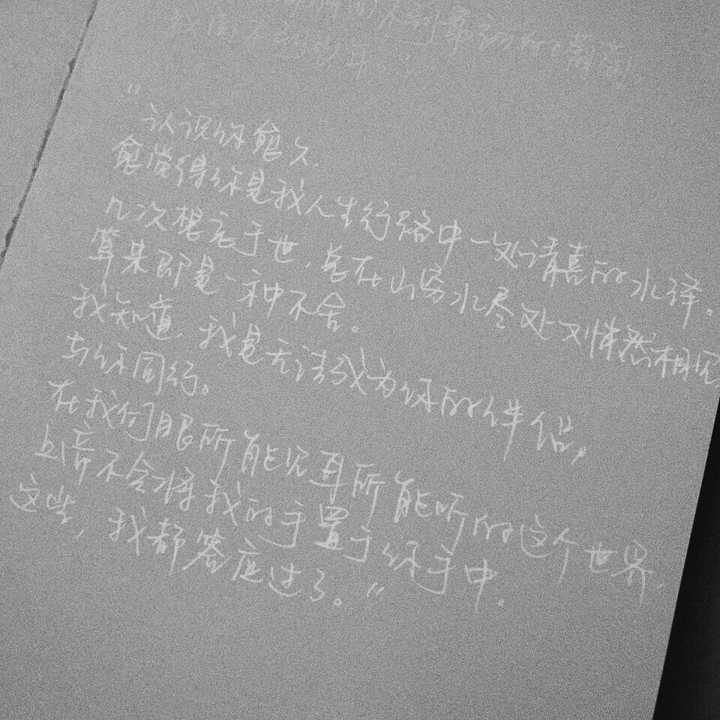 “认识你愈久，
愈觉得你是我人生行路中一处清喜的水泽。
几次想忘于世，总在山穷水尽处又悄然相见
算来即是一种不舍。
我知道，我是无法成为你的伴侣，
与你同行。
在我们眼所能见耳所能听的这个世界，
上帝不会将我的手置于你手中。
这些，我都答应过了。”